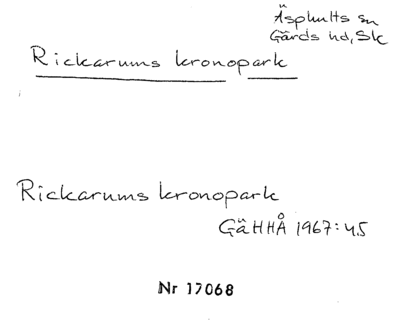 Äsphults sn
Gärds hd, Sk
Rickarums kronopark
Rickarums kronopark
GäHHÅ 1967:45
Nr 17068